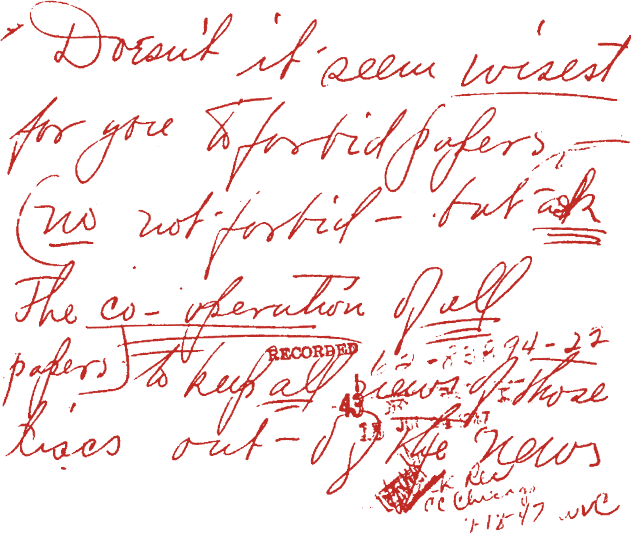 Doesn't it seem wisest
for you to forbid papers -
(no not forbid - but ask
The co-operation of all
papers) to keep all news of those
discs out - of the news
RECORDED
62-83894-22
43
CC Chicago
7-18-47 WVC